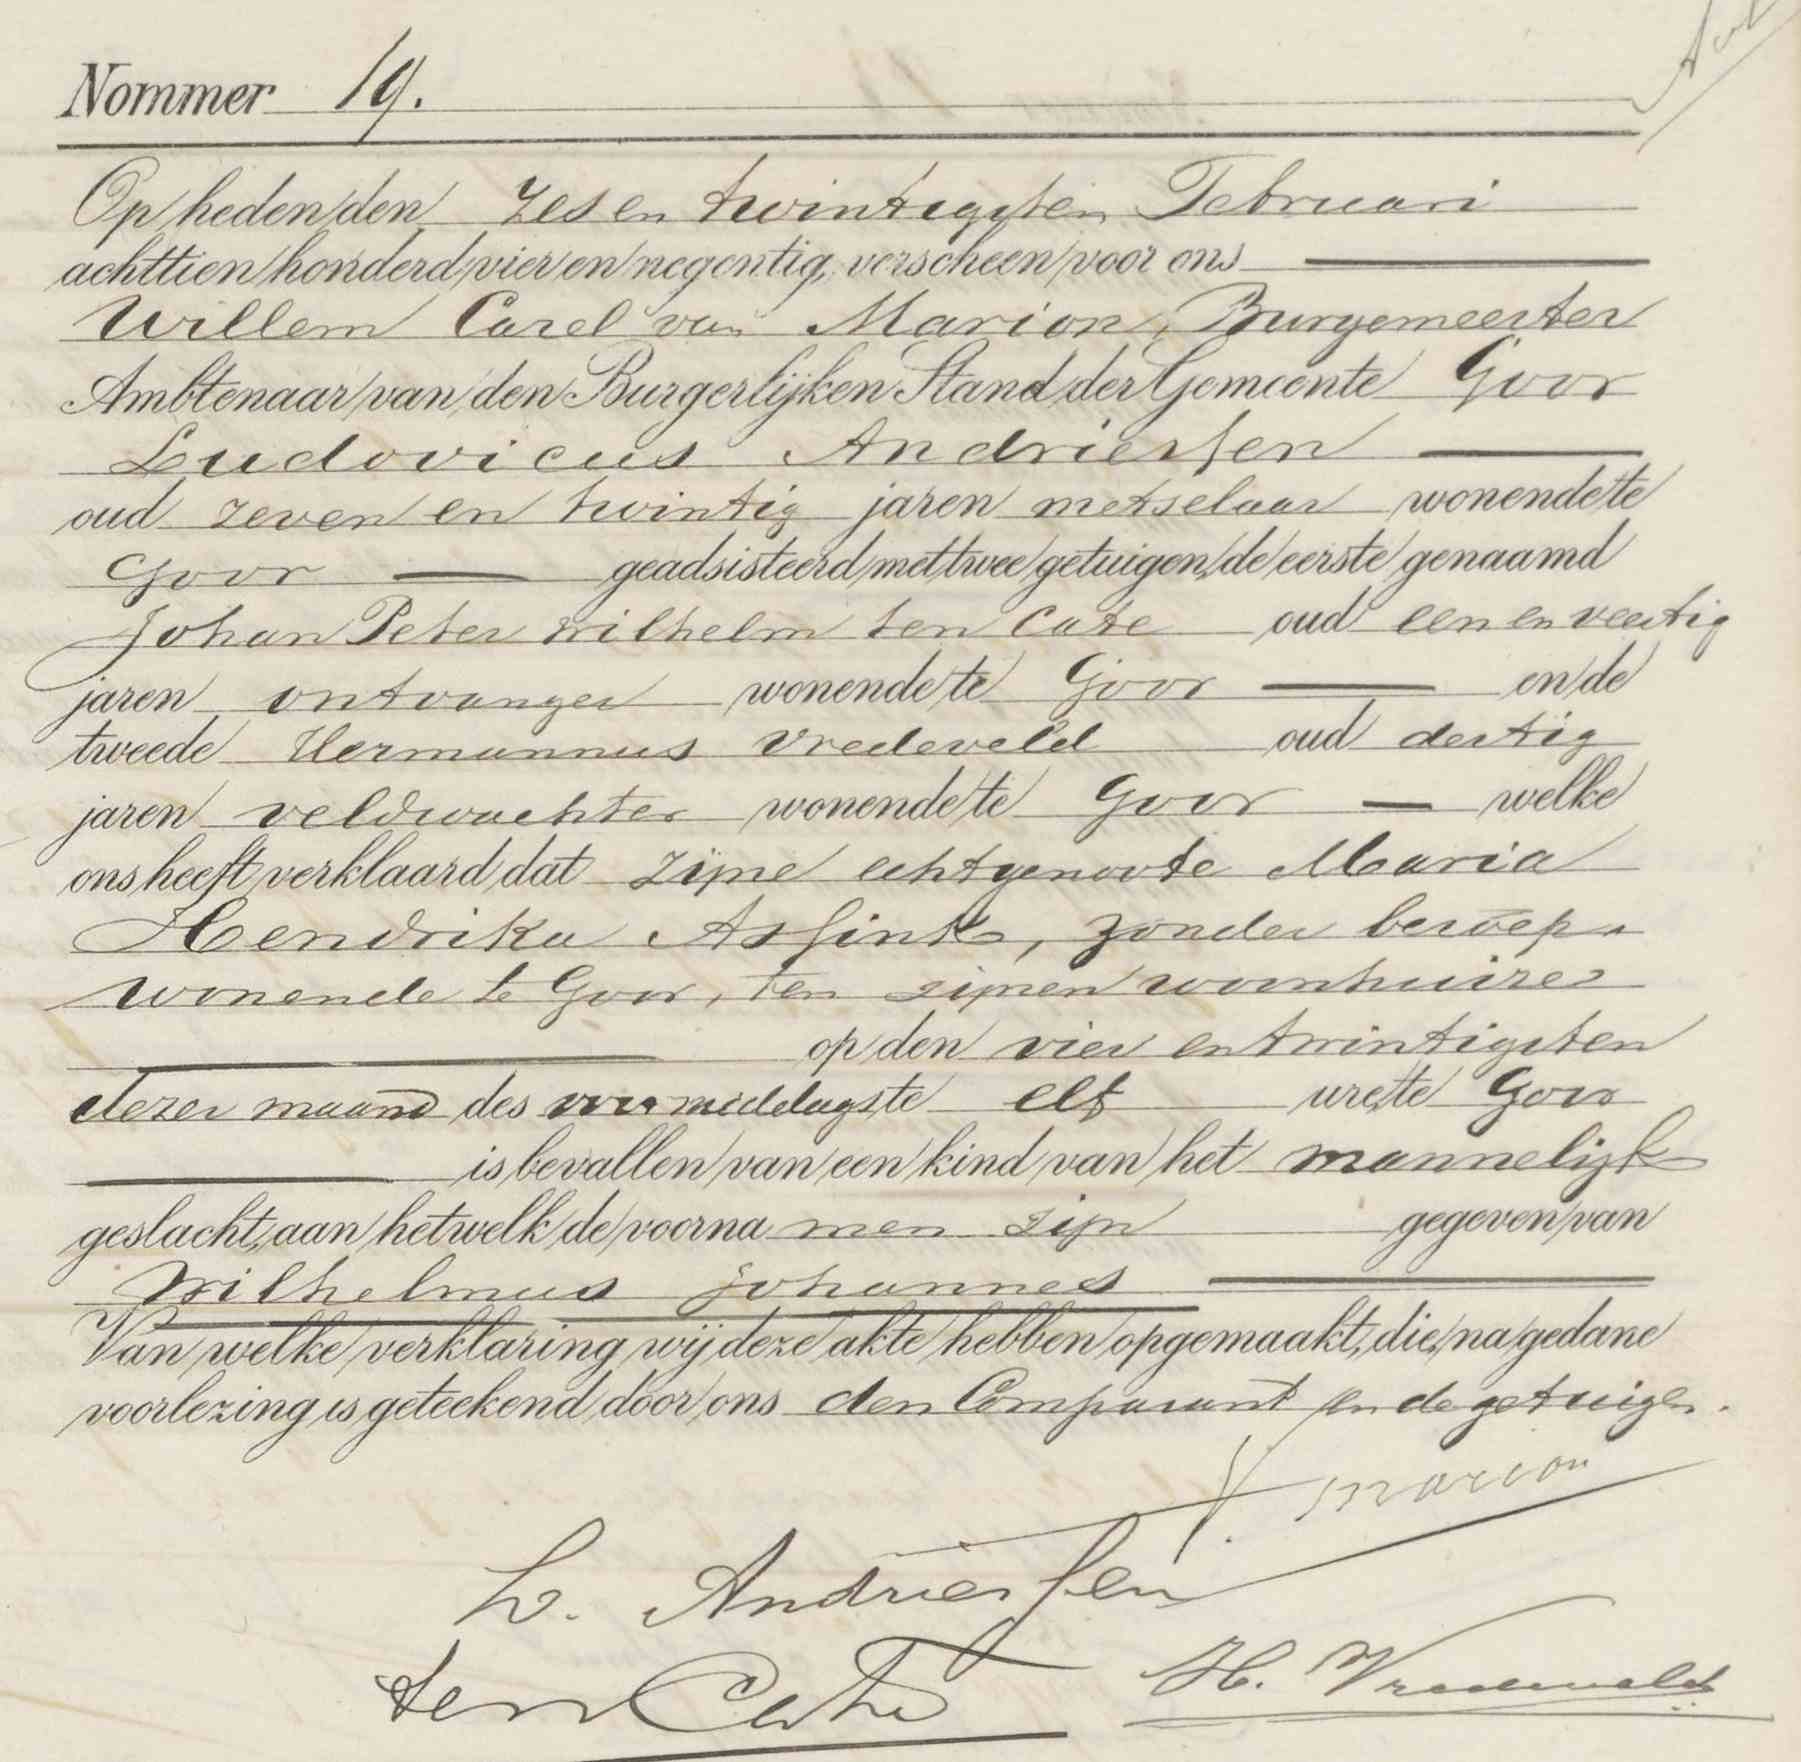 Nommer 19.
Op heden den zes en twintigsten Februari
achttien honderd vier en negentig, verscheen voor ons
Willem Carel van Marion, Burgemeester
Ambtenaar van den Burgerlijken Stand der Gemeente Goor
Ludovicus Andriessen
oud zeven en twintig jaren metselaar wonende te
Goor geadsisteerd met twee getuigen, de eerste genaamd
Johan Peter Wilhelm ten Cate oud een en veertig
jaren ontvanger wonende te Goor en de
tweede Hermannus Vredeveld oud dertig
jaren veldwachter wonende te Goor welke
ons heeft verklaard dat zijne echtgenoote Maria
Hendrika Assink, zonder beroep
wonende te Goor, ten zijnen woonhuize
op den vier en twintigsten
dezer maand des voormiddags te elf ure, te Goor
is bevallen van een kind van het mannelijk
geslacht, aan hetwelk de voornamen zijn gegeven van
Wilhelmus Johannes
Van welke verklaring wij deze akte hebben opgemaakt, die, na gedane
voorlezing is geteekend door ons den Comparant en de getuigen.
V. Marion
L. Andriessen
ten Cate H. Vredeveld